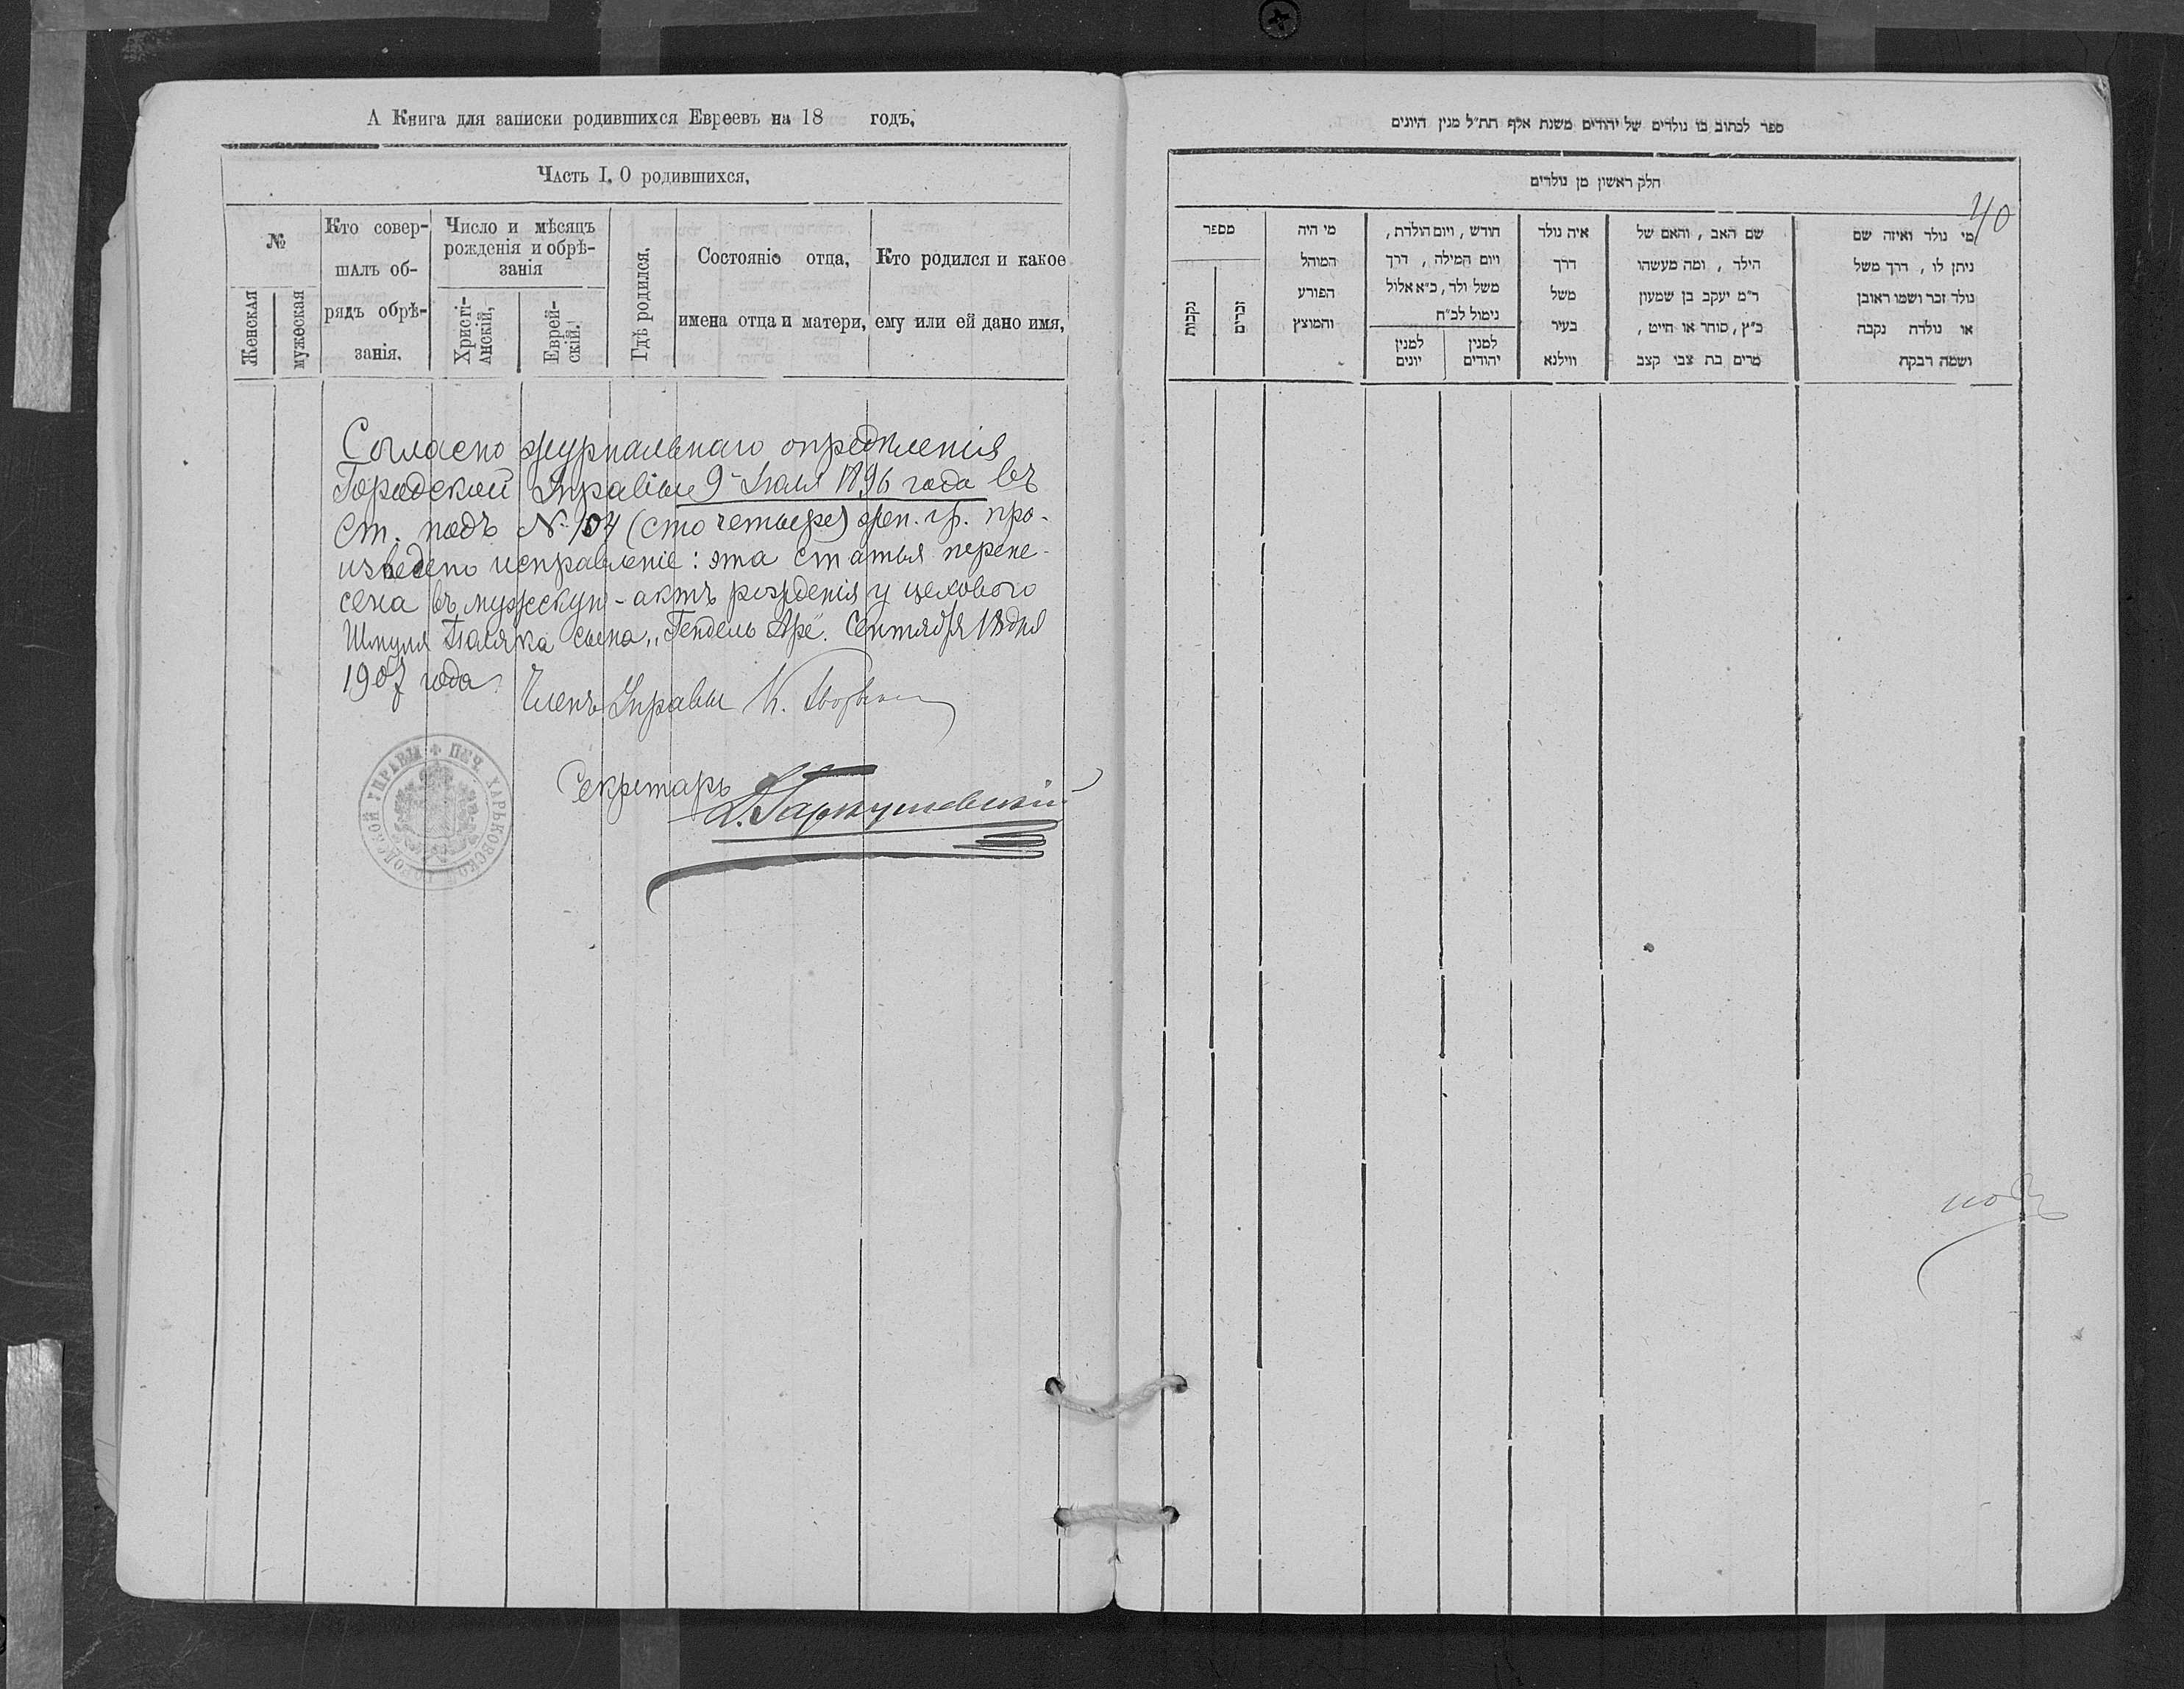 А Книга для записки родившихся Евреевъ на 18 годъ,
Часть I. О родившихся,
№
Женская
мужеская
Кто совер-
шалъ об-
рядъ обрѣ-
занія.
Число и мѣсяцъ
рожденія и обрѣ-
занія
Христі-
анскій,
Еврей-
скій.
Гдѣ родился.
Состояніе отца,
имена отца и матери,
Кто родился и какое
ему или ей дано имя,
Согласно журнальнаго опредѣленія
Городской Управы 9 Іюля 1896 года въ
ст. подъ № 104 (сто четыре) жен. гр. про-
изведено исправленіе: эта статья перене-
сена въ мужскую - актъ рожденія у цехового
Шмуля Поляка сына „Гендель Аре". Сентября 18 дня
1907 года.
Членъ Управы К.
Секретарь
ПЕЧ. ХАРЬКОВСКОЙ ГОРОДСКОЙ УПРАВЫ
ספר לכתוב בו נולדים של יהודים משנת אלף תת״ל מנין היונים
חלק ראשון מן נולדים
40
מי נולד ואיזה שם
ניתן לו , דרך משל
נולד זכר ושמו ראובן
או נולדה נקבה
ושמה רבקה
שם האב , והאם של
הילד , ומה מעשהו
ר״מ יעקב בן שמעון
כ״ץ , סוחר או חייט ,
מרים בת צבי קצב
איה נולד
דרך
משל
בעיר
ווילנא
חודש , ויום הולדת ,
ויום המילה , דרך
משל ולד , כ״א אלול
נימול לכ״ח
למנין
יהודים
למנין
יונים
מי היה
המוהל
הפורע
והמוצץ
מספר
זכרים
נקבות